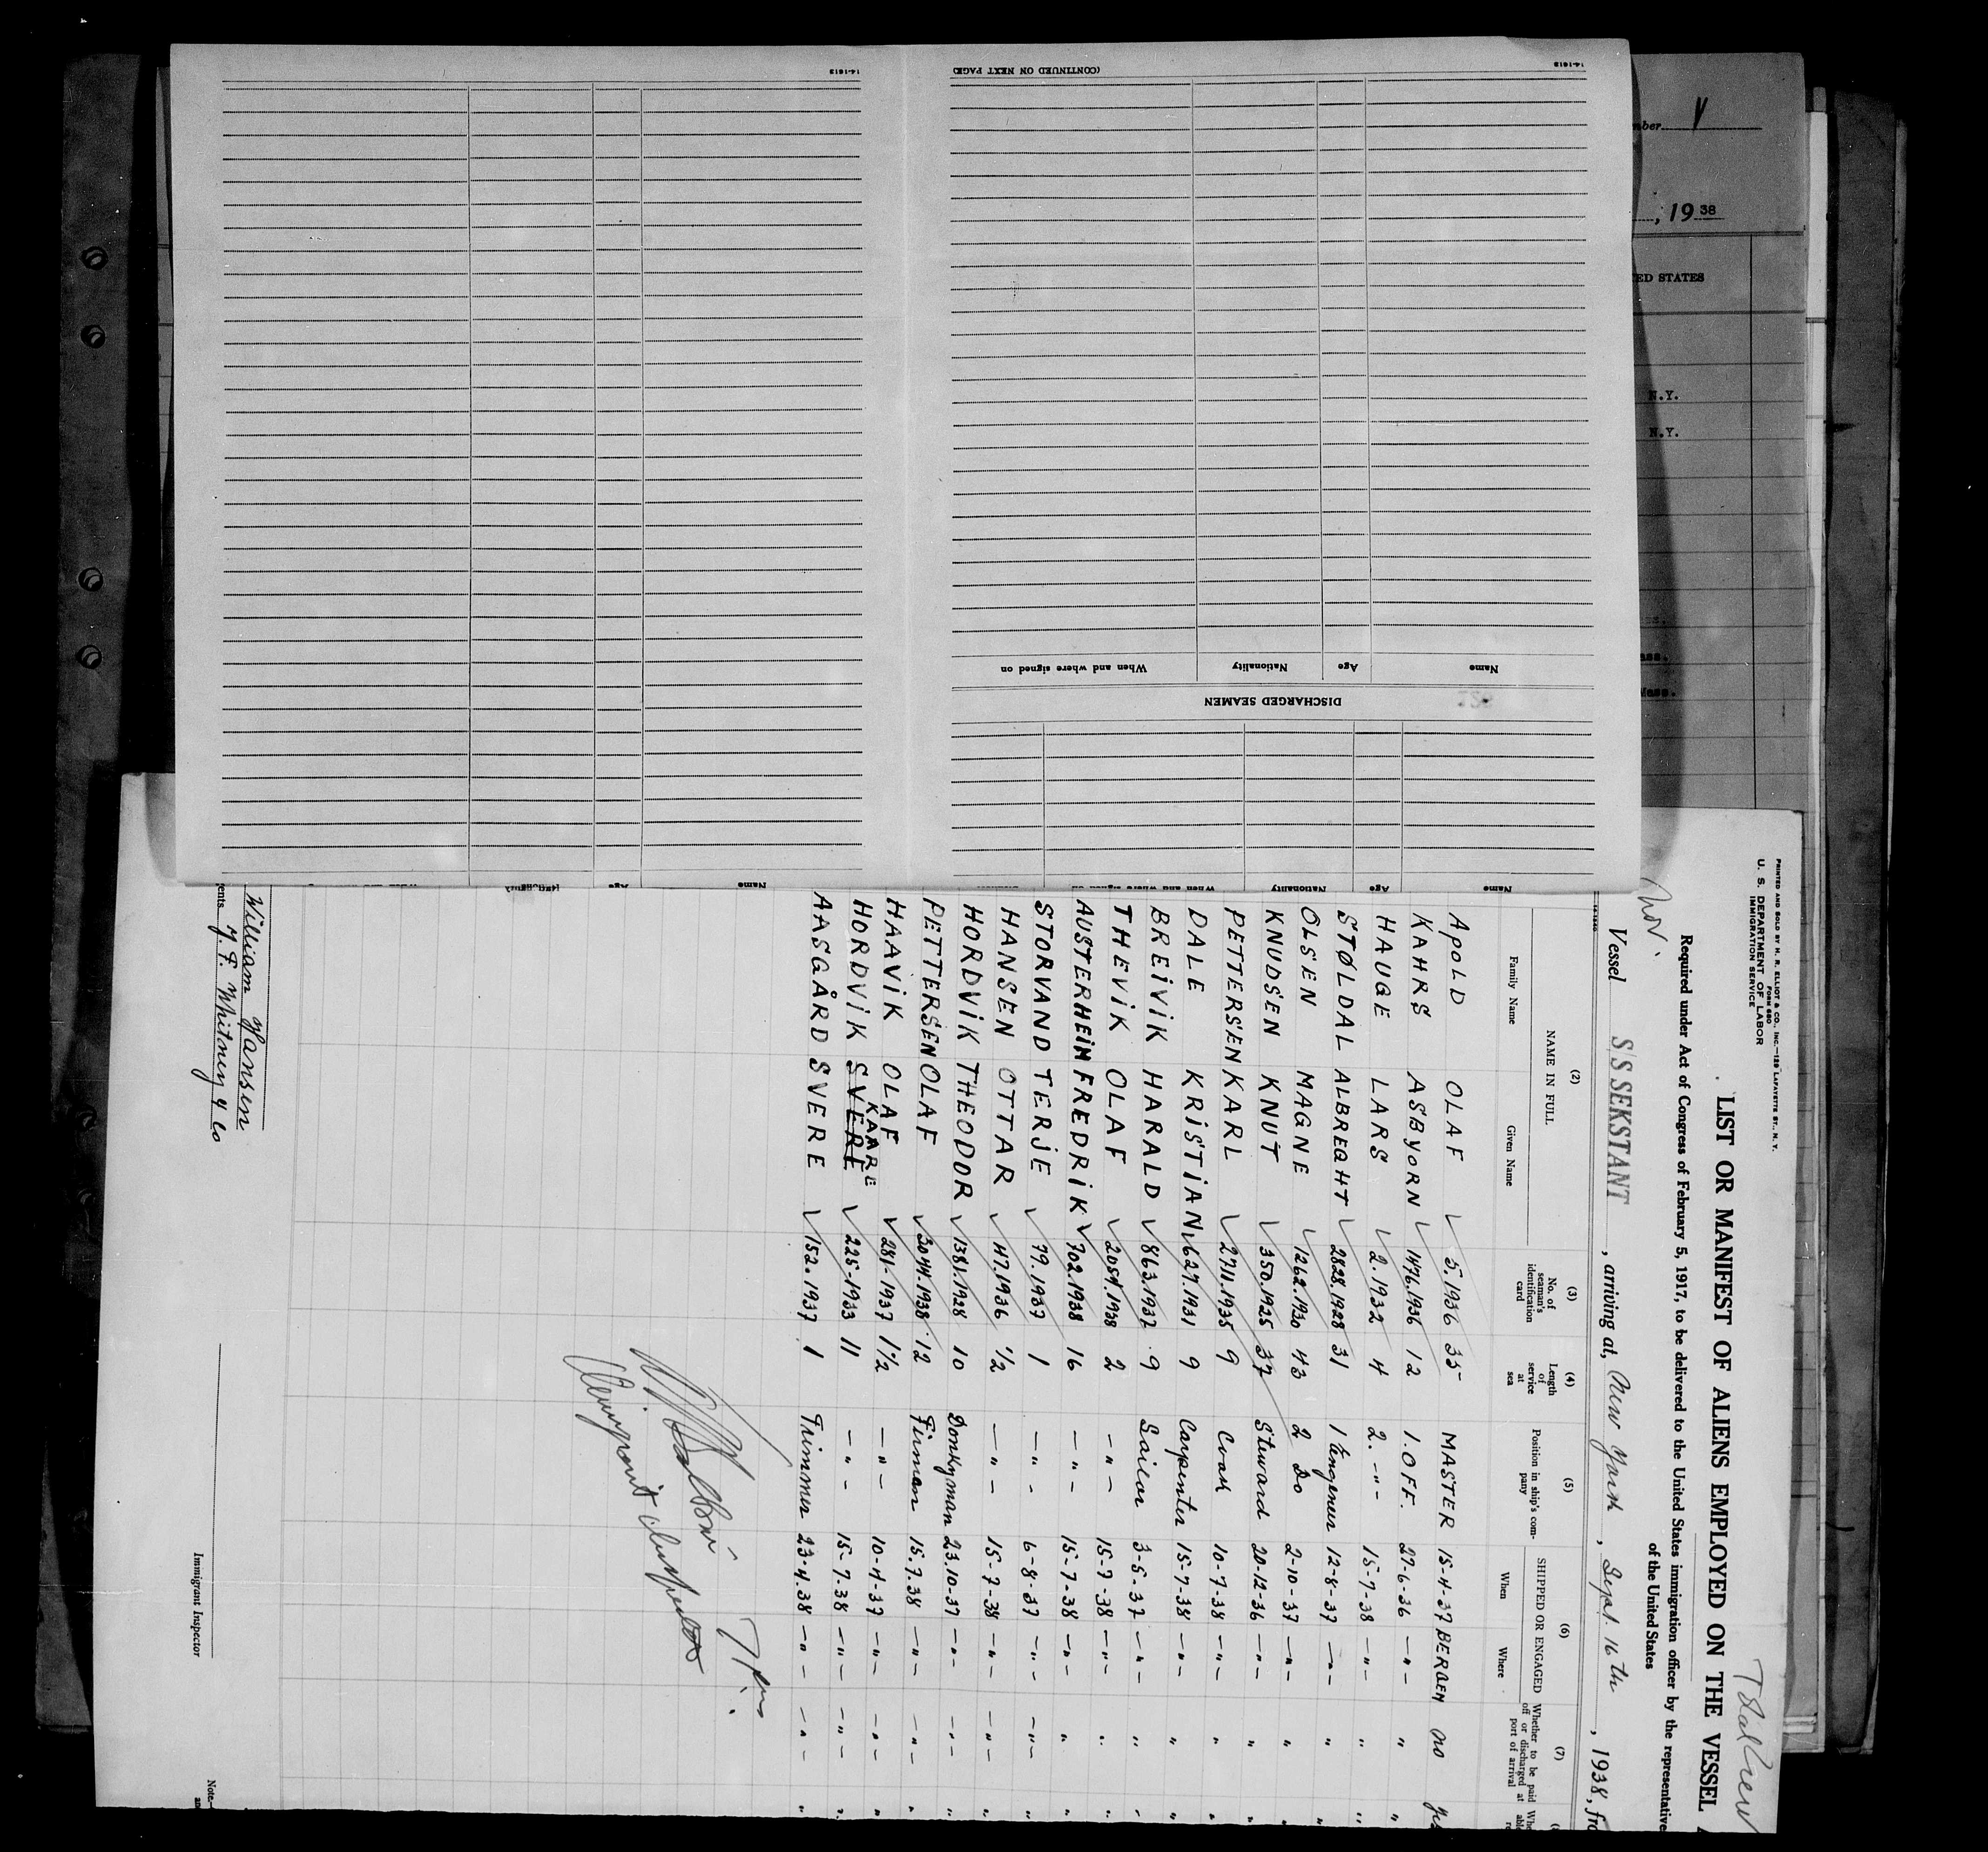 14-1613
(CONTINUED ON NEXT PAGE)
14-1613
Name
Age
Nationality
When and where signed on
DISCHARGED SEAMEN
Name
Age
Nationality
When and where signed on
Name
Age
Nationality
, 19 38
ED STATES
N.Y.
N.Y.
PRINTED AND SOLD BY H. R. ELLIOT & CO., INC.—1219 LAFAYETTE ST., N. Y.
FORM 680
U. S. DEPARTMENT OF LABOR
IMMIGRATION SERVICE
Total Crew
LIST OR MANIFEST OF ALIENS EMPLOYED ON THE VESSEL
Required under Act of Congress of February 5, 1917, to be delivered to the United States immigration officer by the representatives
of the United States
Nov.
Vessel S/S SEKSTANT, arriving at, New York, Sept. 16th, 1938, fro
(2) (3) (4) (5) (6) (7)
NAME IN FULL
Family Name Given Name
No. of seaman's identification card
Length of service at sea
Position in ship's company
SHIPPED OR ENGAGED
When Where
Whether to be paid off or discharged at port of arrival
APOLD OLAF 5.1936 35 MASTER 15-4-37 BERGEN no yes
KAHRS ASBYORN 1476.1936 12 1.OFF. 27-6-36 —"— "
HAUGE LARS 2.1932 4 2. —"— 15-7-38 —"— "
STØLDAL ALBREGHT 2828.1928 31 1 Engeneer 12-8-37 —"— "
OLSEN MAGNE 1262.1930 43 2 Do 2-10-37 —"— "
KNUDSEN KNUT 350.1925 37 Steward 20-12-36 —"— "
PETTERSEN KARL 2711.1935 9 Cook 10-7-38 —"— "
DALE KRISTIAN 1627.1931 9 Carpenter 15-7-38 —"— "
BREIVIK HARALD 863.1937 9 Sailor 3-5-37 —"— "
THEVIK OLAF 2054.1938 2 —"— 15-7-38 —"— "
AUSTERHEIM FREDRIK 702.1938 16 —"— 15-7-38 —"— "
STORVAND TERJE 79.1937 1 —"— 6-8-37 —"— —"—
HANSEN OTTAR 47.1936 1/2 —"— 15-7-38 —"— —"—
HORDVIK THEODOR 1381.1928 10 Donkyman 23.10-37 —"— —"—
PETTERSEN OLAF 3044.1938 12 Firman 15.7.38 —"— —"—
HAAVIK OLAF 281-1937 1 1/2 —"— 10-4-37 —"— —"—
KAARE
HORDVIK SVERE 225-1933 11 —"— 15-7-38 —"— —"—
AASGÅRD SVERE 152.1937 1 Trimmer 23-4.38 —"— —"—
7 Pm.
Immigrant Inspector
William Hansen
ents J. F. Whitney & Co
Immigrant Inspector
Note.—